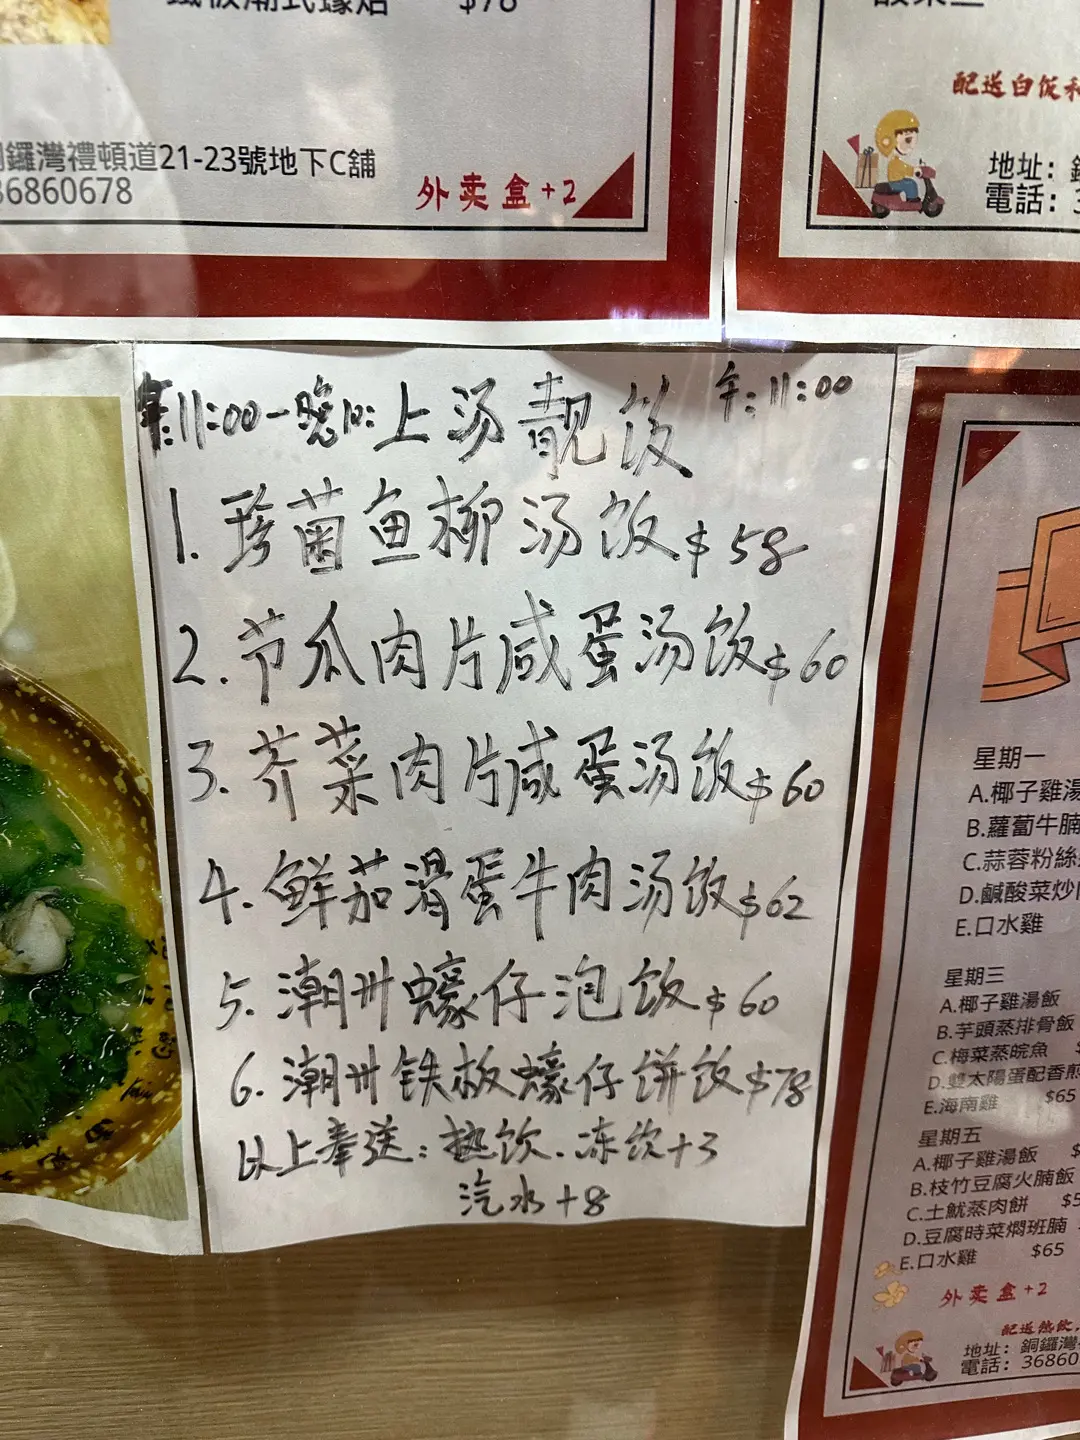 $78
銅鑼灣禮頓道21-23號地下C舖
36860678
外卖盒+2
配送白饭
地址：
電話：3
上汤靓饭
11:00-晚10:
午:11:00
1.珍菌鱼柳汤饭$58
2.节瓜肉片咸蛋汤饭$60
3.芥菜肉片咸蛋汤饭$60
4.鲜茄滑蛋牛肉汤饭$62
5.潮州蠔仔泡饭$60
6.潮州铁板蠔仔饼饭$78
以上奉送:热饮.冻饮+3
汽水+8
星期一
A.椰子雞湯
B.蘿蔔牛腩
C.蒜蓉粉絲
D.鹹酸菜炒
E.口水雞
星期三
A.椰子雞湯飯
B.芋頭蒸排骨飯
C.梅菜蒸皖魚
D.雙太陽蛋配香煎
E.海南雞 $65
星期五
A.椰子雞湯飯 $
B.枝竹豆腐火腩飯
C.土魷蒸肉餅 $5
D.豆腐時菜燜班腩
E.口水雞 $65
外卖盒+2
配送热飲,
地址：銅鑼灣
電話：36860